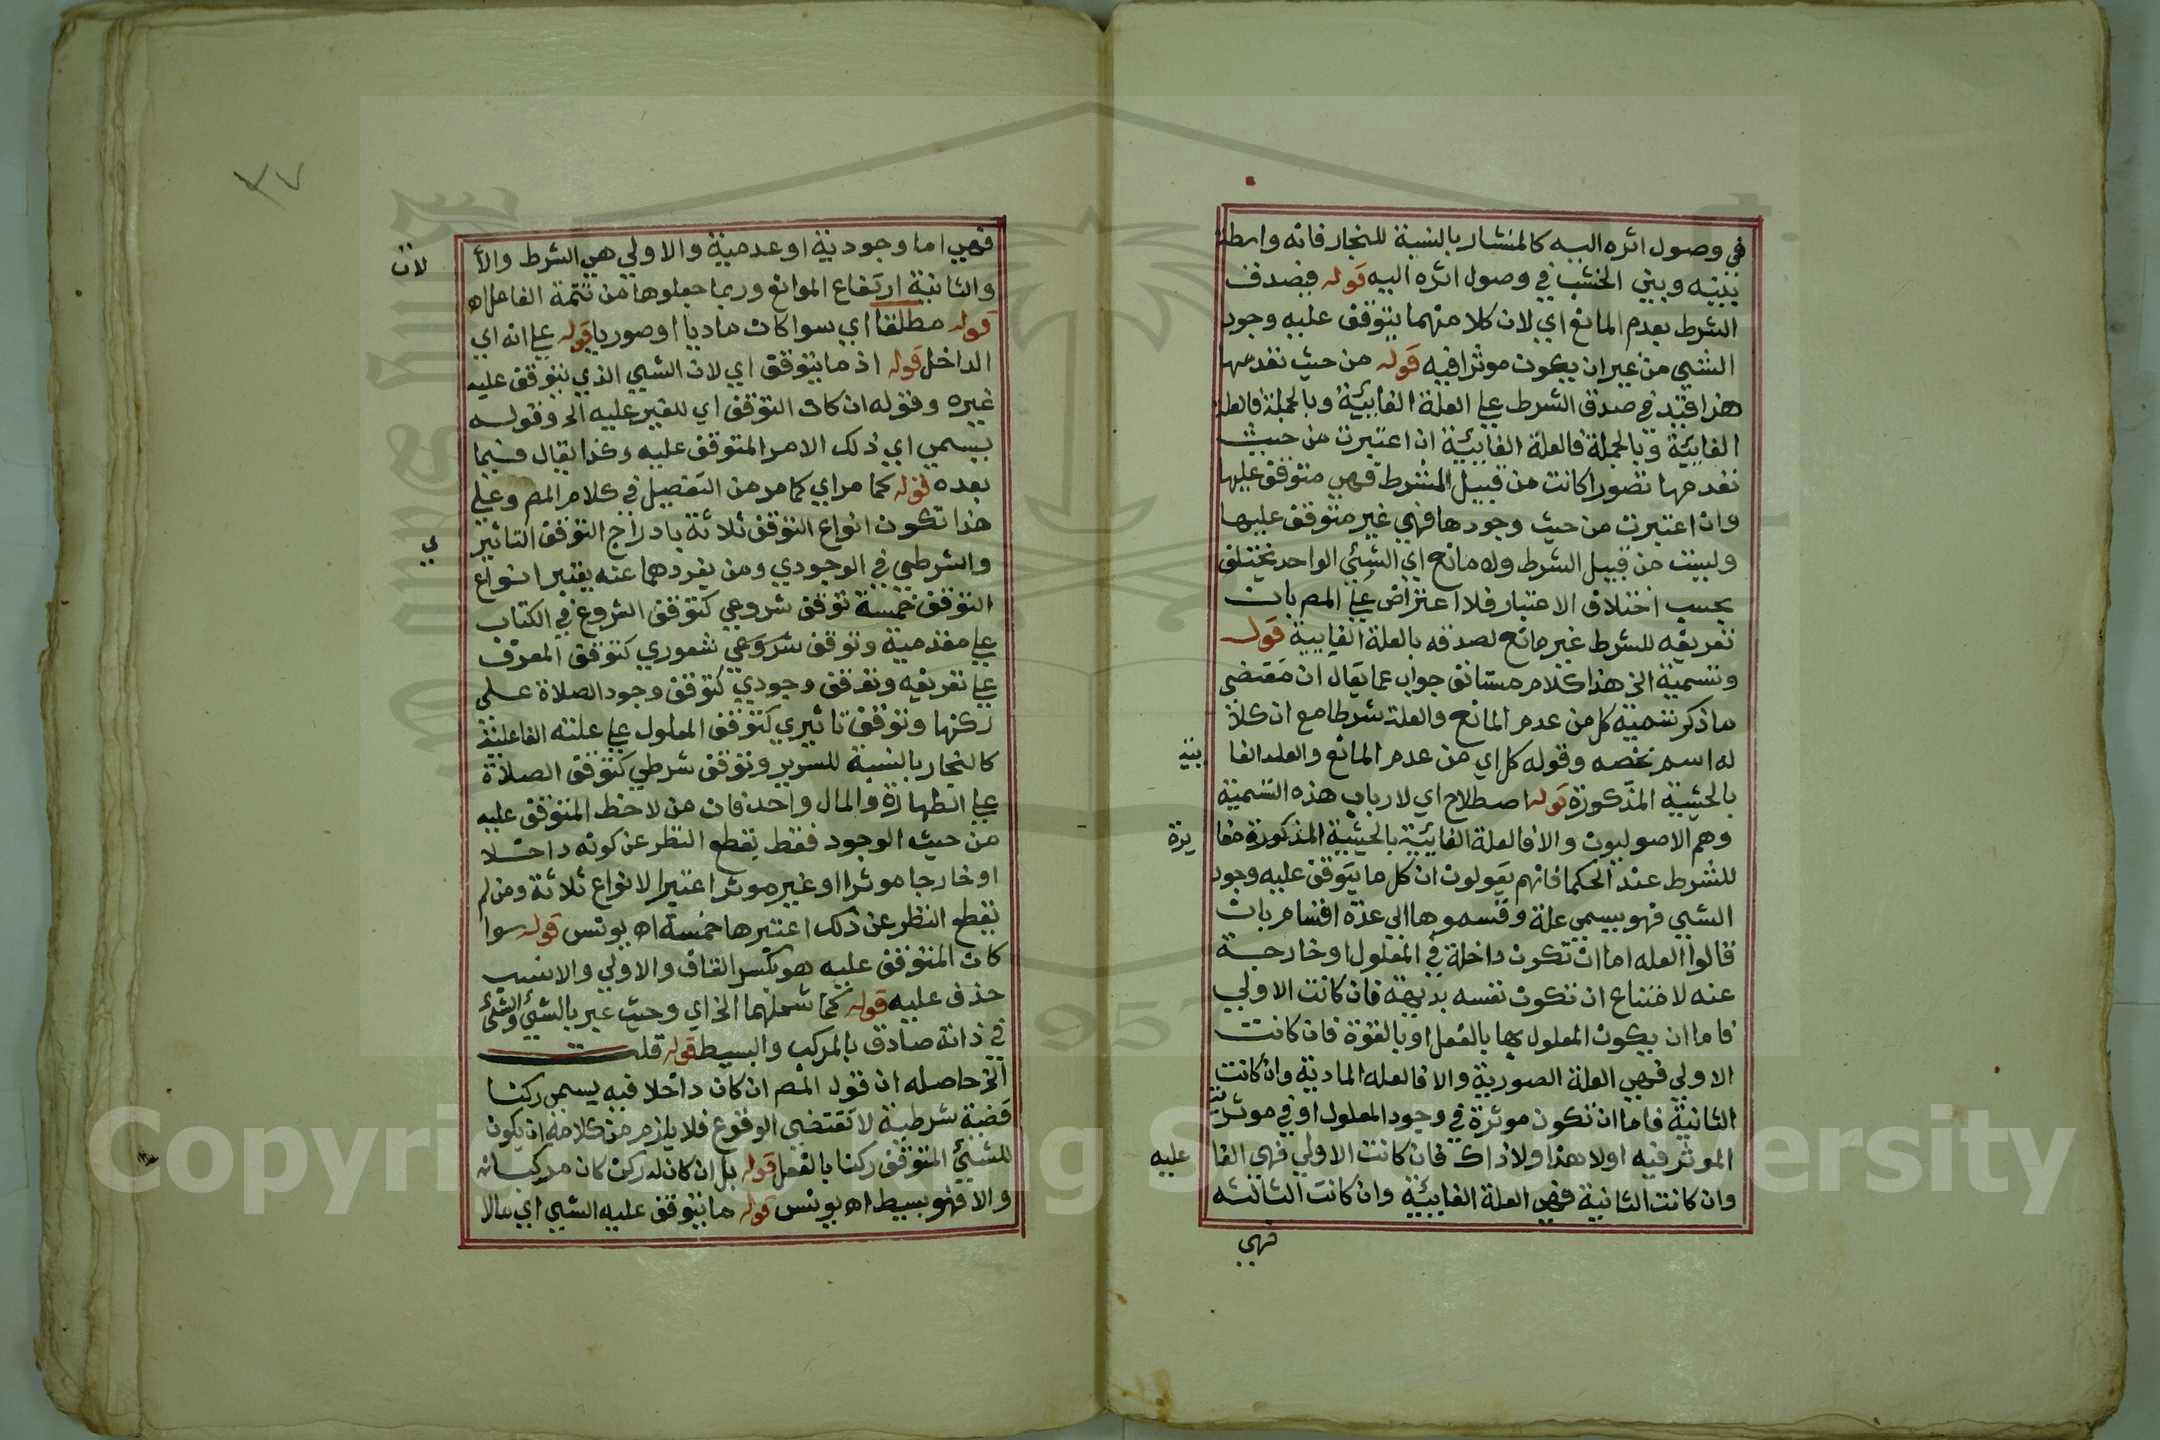 في وصول اثره اليه كالمنشار بالنسبة للنجار فانه واسطة
بينه وبين الخشب في وصول اثره اليه قوله فيصدق
الشرط بعدم المانع اي لان كلا منهما يتوقف عليه وجود
الشي من غير ان يكون موثرا فيه قوله من حيث تقدمها
هذا قيد في صدق الشرط علي العلة الغايية وبالجملة فالعلة
الغايية وبالجملة فالعلة الغايية ان اعتبرت من حيث
تقدمها تصورا كانت من قبيل المشرط فهي متوقف عليها
وان اعتبرت من حيث وجودها فهي غير متوقف عليها
وليست من قبيل الشرط ولا مانع اي الشي الواحد يختلف
بحسب اختلاف الاعتبار فلا اعتراض علي المص بان
تعريفه للشرط غير مانع لصدقه بالعلة الغايية قوله
وتسمية الخ هذا كلام مستانف جواب عما يقال ان مقتضي
ما ذكر تسمية كل من عدم المانع والعلة شرطا مع ان كلا
له اسم يخصه وقوله كل اي من عدم المانع والعلة الغا
ئية
بالحيثية المذكورة قوله اصطلاح اي لارباب هذه التسمية
وهم الاصوليون والا فالعلة الغائية بالحيثية المذكورة مغا
يرة
للشرط عند الحكما فانهم يقولون ان كل ما يتوقف عليه وجود
الشي فهو يسمي علة وقسموها الي عدة اقسام بان
قالوا العله اما ان تكون داخلة في المعلول او خارجة
عنه لامتناع ان تكون نفسه بديهة فان كانت الاولي
فاما ان يكون المعلول بها بالفعل او بالقوة فان كانت
الاولي فهي العلة الصورية والا فالعله المادية وان كانت
الثانية فاما ان تكون موثرة في وجود المعلول او في موثرية
الموثر فيه او لا هذا ولا ذاك فان كانت الاولي فهي الفا
عليه
وان كانت الثانية فهي العلة الغايية وان كانت الثالثه
فهي
٢٧
فهي اما وجودية او عدمية والاولي هي الشرط والا
لات
والثانية ارتفاع الموانع وربما جعلوها من تتمة الفاعل اه
قوله مطلقا اي سوا كان ماديا او صوريا قوله علي انه اي
الداخل قوله اذ ما يتوقف اي لان الشي الذي يتوقف عليه
غيره وقوله ان كان التوقف اي للغير عليه الخ وقوله
يسمي اي ذلك الامر المتوقف عليه وكذا يقال فيما
بعده قوله كما مر اي كما مر من التفصيل في كلام المص وعلي
هذا تكون انواع التوقف ثلاثة بادراج التوقف التاثير
ي
والشرطي في الوجودي ومن يفردهما عنه يعتبر انواع
التوقف خمسة توقف شروعي كتوقف الشروع في الكتاب
علي مقدمية وتوقف شروعي شعوري كتوقف المعرف
علي تعريفه وتوقف وجودي كتوقف وجود الصلاة علي
ركنها وتوقف تاثيري كتوقف المعلول علي علته الفاعلية
كالنجار بالنسبة للسرير وتوقف شرطي كتوقف الصلاة
علي الطهارة والمال واحد فان من لاحظ المتوقف عليه
من حيث الوجود فقط بقطع النظر عن كونه داخلا
او خارجا موثرا او غير موثر اعتبر الانواع ثلاثة ومن لم
يقطع النظر عن ذلك اعتبرها خمسة اه يونس قوله سوا
كان المتوقف عليه هو بكسر القاف والاولي والانسب
حذف عليه قوله كما شملهما الخ اي وحيث عبر بالشي والشي
في ذاته صادق بالمركب والبسيط قوله قلت
الخ حاصله ان قول المص ان كان داخلا فيه يسمي ركنا
قضية شرطية لا تقتضي الوقوع فلا يلزم من كلامه ان يكون
للشي المتوقف ركنا بالفعل قوله بل ان كان له ركن كان مركبا
والا فهو بسيط اه يونس قوله ما يتوقف عليه الشي اي مالا
Copyright © King Saud University
1957